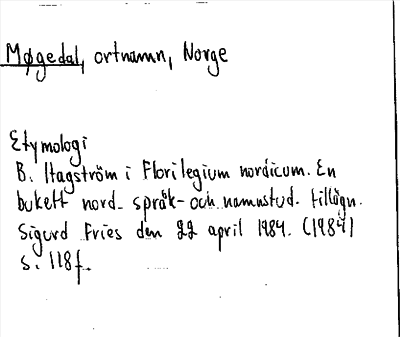 Møgedal, ortnamn, Norge
Etymologi
B. Hagström i Florilegium nordicum. En
bukett nord. språk- och namnstud. tillägn.
Sigurd Fries den 22 april 1984. (1984)
s. 118f.